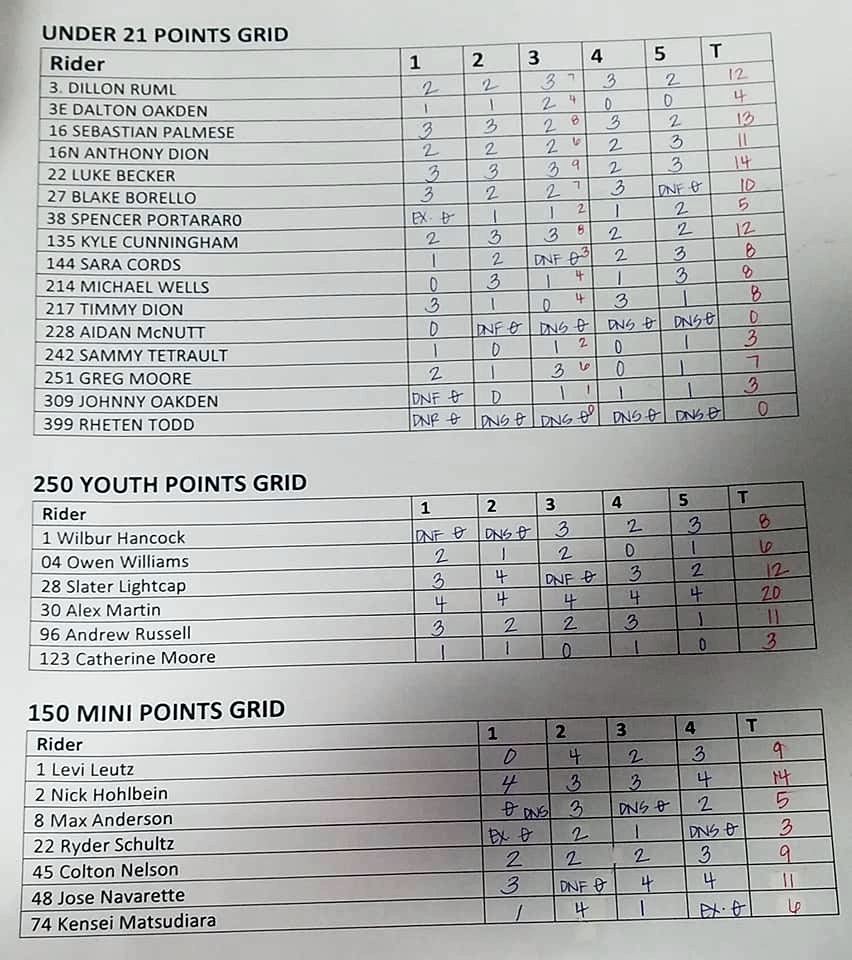 UNDER 21 POINTS GRID
Rider 1 2 3 4 5 T
3. DILLON RUML 2 2 3 7 3 2 12
3E DALTON OAKDEN 1 1 2 4 0 0 4
16 SEBASTIAN PALMESE 3 3 2 8 3 2 13
16N ANTHONY DION 2 2 2 6 2 3 11
22 LUKE BECKER 3 3 3 9 2 3 14
27 BLAKE BORELLO 3 2 2 7 3 DNF 0 10
38 SPENCER PORTARARO EX. 0 1 1 2 1 2 5
135 KYLE CUNNINGHAM 2 3 3 8 2 2 12
144 SARA CORDS 1 2 DNF 0 3 2 3 8
214 MICHAEL WELLS 0 3 1 4 1 3 8
217 TIMMY DION 3 1 0 4 3 1 8
228 AIDAN McNUTT 0 DNF 0 DNS 0 DNS 0 DNS 0 0
242 SAMMY TETRAULT 1 0 1 2 0 1 3
251 GREG MOORE 2 1 3 6 0 1 7
309 JOHNNY OAKDEN DNF 0 0 1 1 1 1 3
399 RHETEN TODD DNF 0 DNS 0 DNS 0 0 DNS 0 DNS 0 0
250 YOUTH POINTS GRID
Rider 1 2 3 4 5 T
1 Wilbur Hancock DNF 0 DNS 0 3 2 3 8
04 Owen Williams 2 1 2 0 1 6
28 Slater Lightcap 3 4 DNF 0 3 2 12
30 Alex Martin 4 4 4 4 4 20
96 Andrew Russell 3 2 2 3 1 11
123 Catherine Moore 1 1 0 1 0 3
150 MINI POINTS GRID
Rider 1 2 3 4 T
1 Levi Leutz 0 4 2 3 9
2 Nick Hohlbein 4 3 3 4 14
8 Max Anderson 0 DNS 3 DNS 0 2 5
22 Ryder Schultz EX 0 2 1 DNS 0 3
45 Colton Nelson 2 2 2 3 9
48 Jose Navarette 3 DNF 0 4 4 11
74 Kensei Matsudiara 1 4 1 EX. 0 6